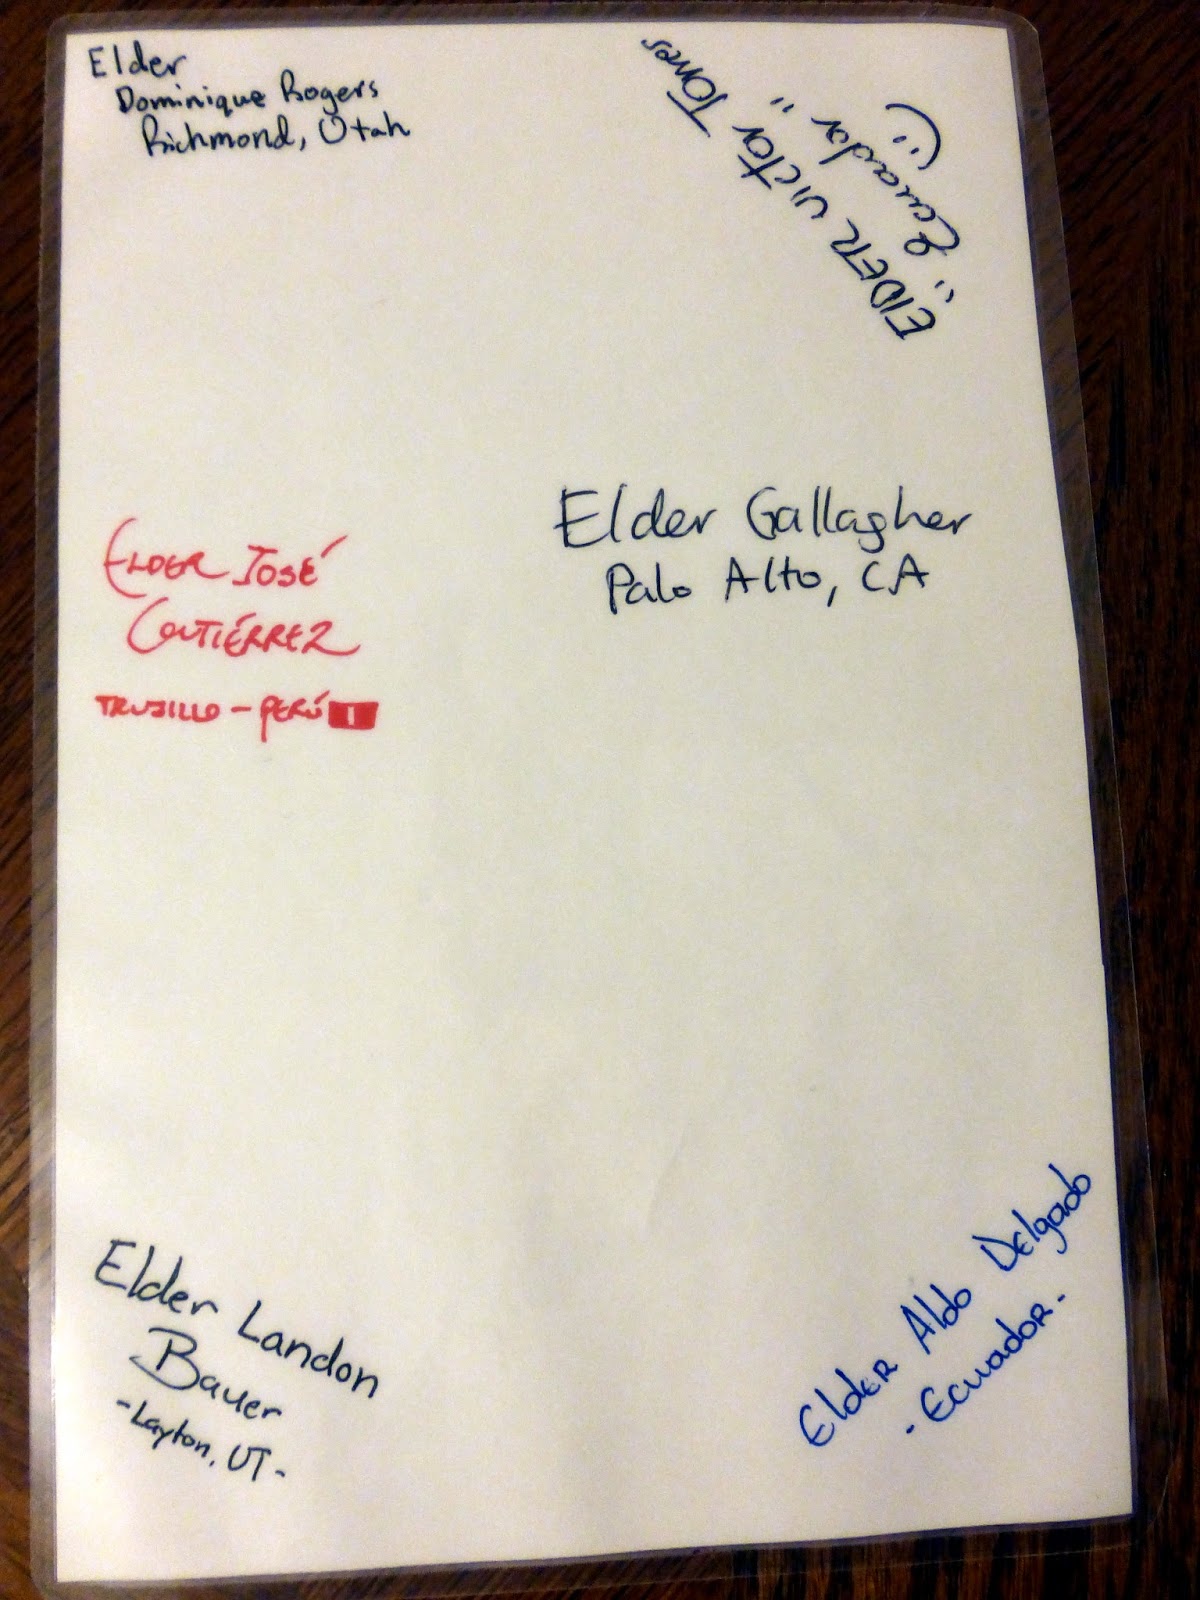 Elder
Dominique Rogers
Richmond, Utah
ElDER victor Torres
"Ecuador"
Elder Gallagher
Palo Alto, CA
ELDER JOSÉ
GUTIÉRREZ
TRUJILLO - PERÚ
Elder Landon
Bauer
-Layton, UT-
Elder Aldo Delgado
- Ecuador. -